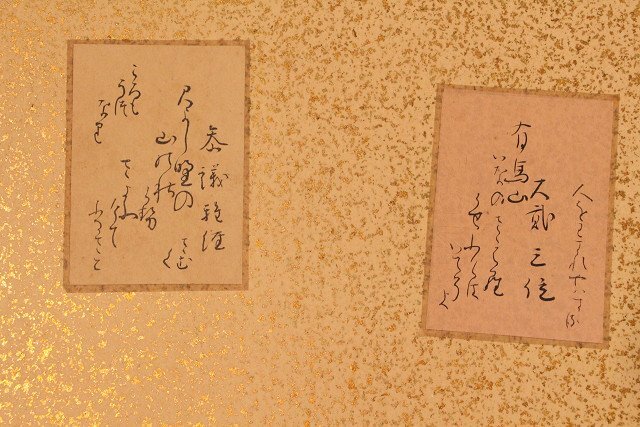 大貳三位
有馬山
いなのさゝ原
かせふけは
いてそよ
人をわすれやはする
参議雅経
みよし野の
山の秋
かせ
さよふ
けて
ふるさと
さむ
く
ころも
うつ
なり